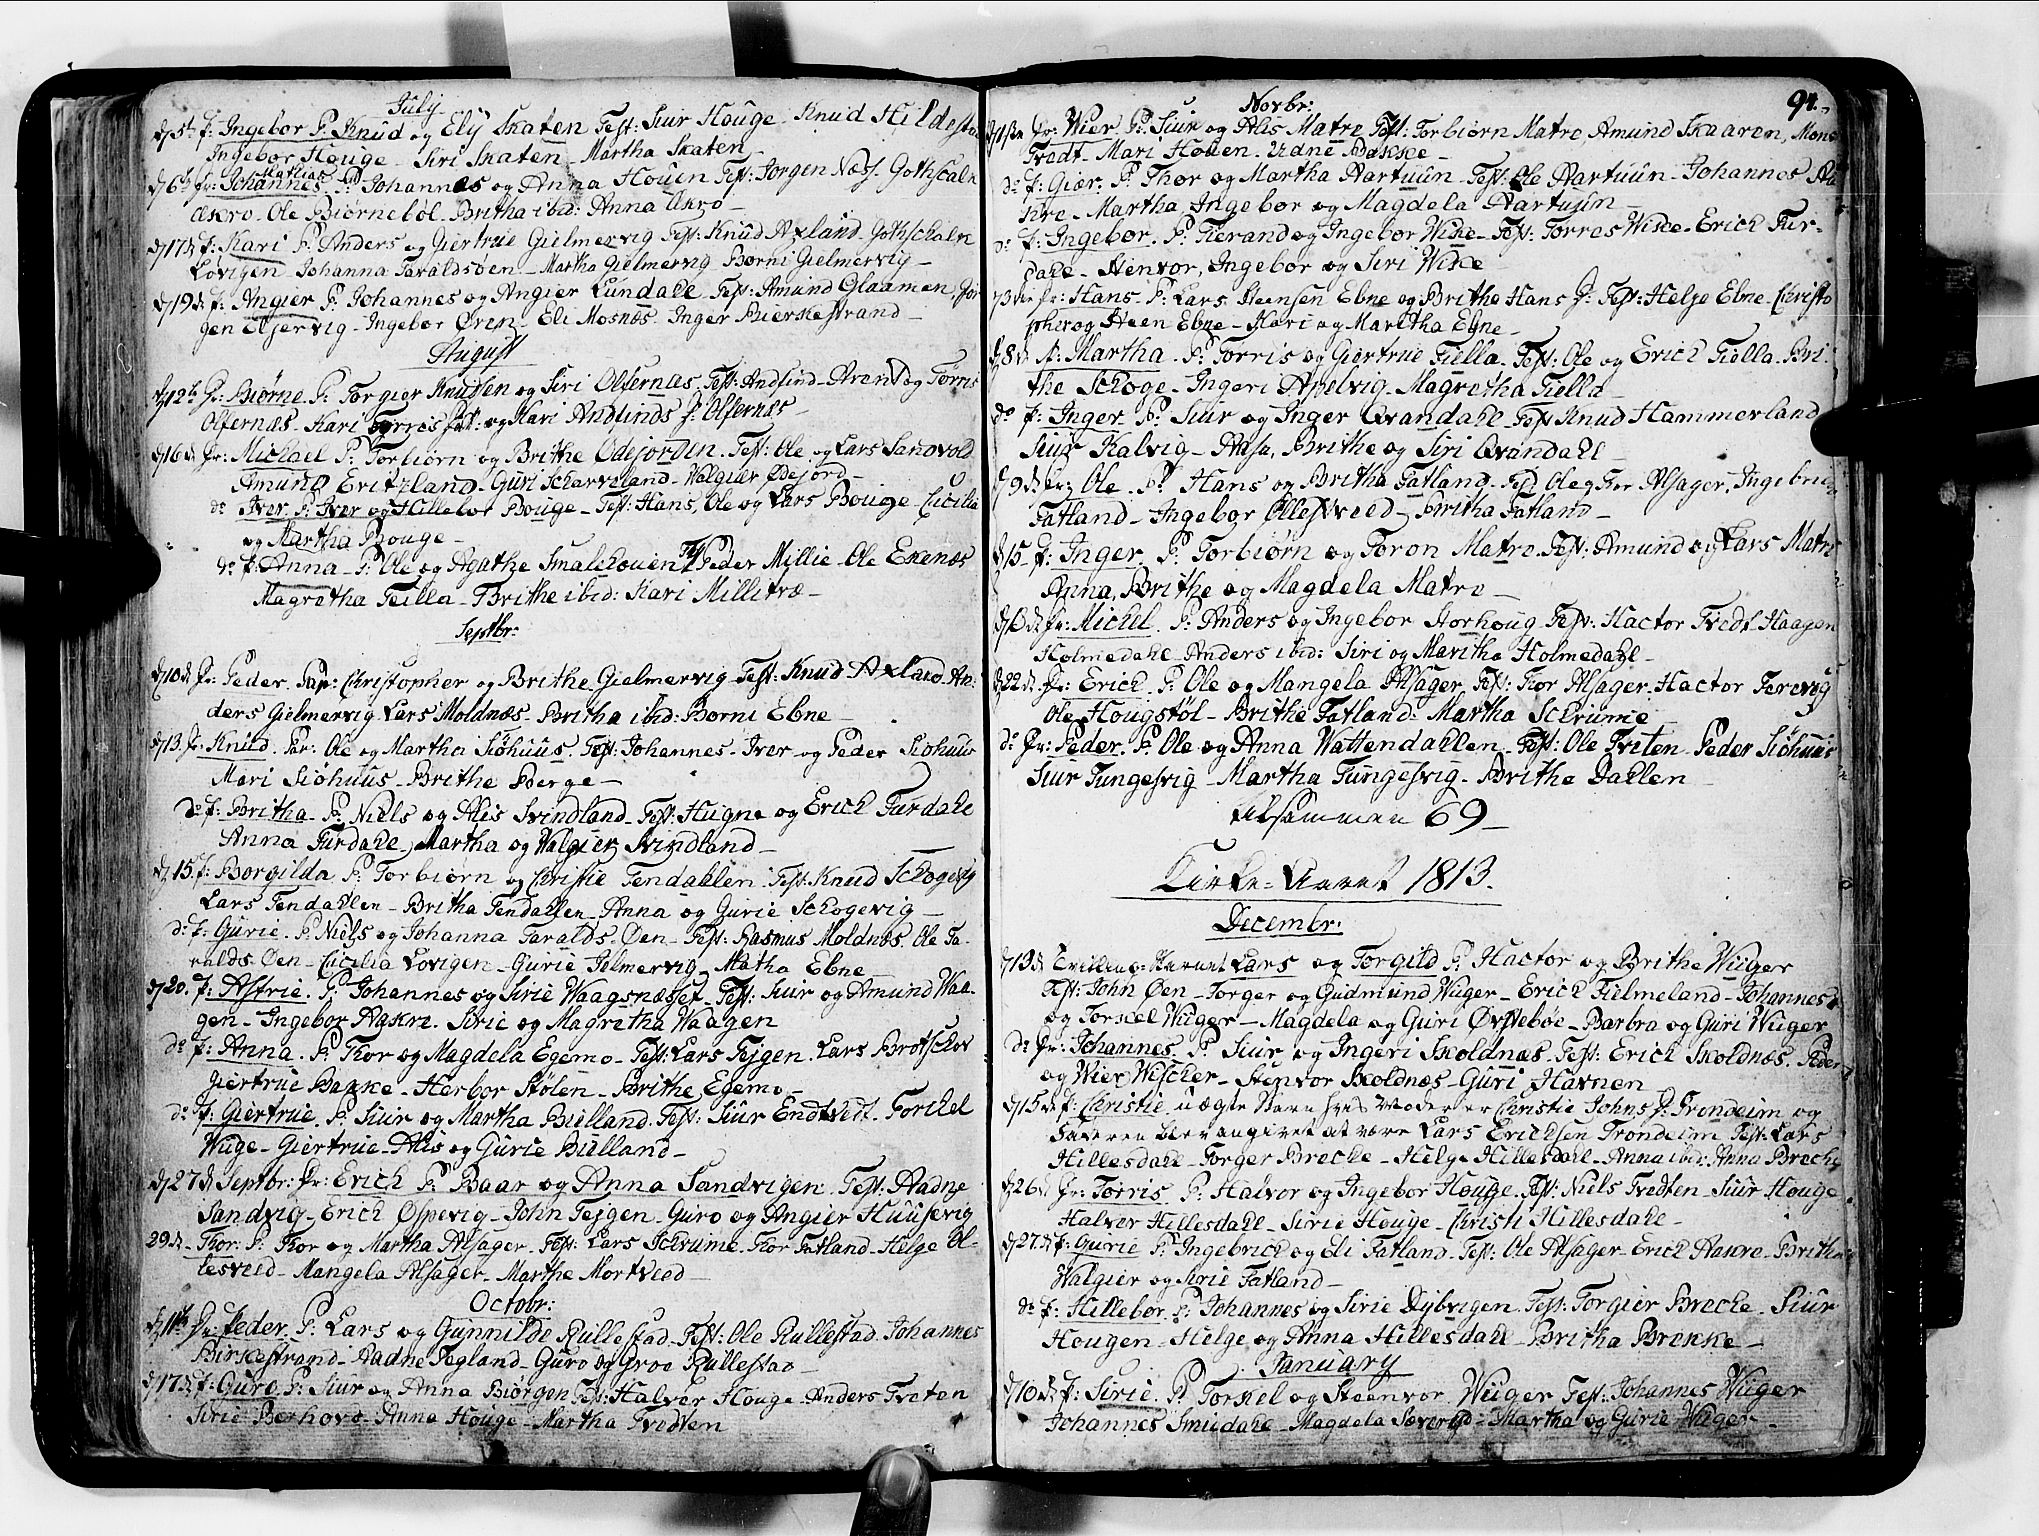 July
d 5te f: Ingebor P: Knud og Ely Skaten Test: Siur Houge Knud Hildestad
Ingebor Houge - Siri Skaten - Martha Skaten -
Mathias
d 6te fr: Johannes P: Johannes og Anna Houen Test: Jorgen Næss. Gothscalk
Askro - Ole Biørnebøl - Britha ibid: Anna Akro -
d 17de f: Kari P: Anders og Giertrue Gielmervig Test: Knud Axland - Gothschalk
Løvigen - Johanna Taraldsøen - Martha Gielmervig Borni Gielmervig -
d 19de f: Angier P: Johannes og Angier Lundahl Test: Amund Glaamen, Jør
gen Eljervig - Ingebor Øren - Eli Mosnæs. Inger Bierkestrand -
August
d 12te Dr: Biørne P: Torgier Knudsen og Siri Olfernæs Test: Andlind - Arent og Torris
Olfernæs - Kari Torris og Kari Andlinds D: Olfernæs -
d 16de Dr: Michael P: Torbiørn og Brithe Ødejorden Test: Ole og Lars Sandvold
Amund Eritzland - Guri Scharveland - Walgiær Øejord -
do Iver P: Iver og Hillebor Bouge - Test: Hans, Ole og Lars Bouge Cicilia
og Martha Bouge -
do f: Anna - P: Ole og Agathe Smalehouen Test: Peder Millie - Ole Ekenæs
Magretha Teilla - Brithe ibid: Kari Millitræ -
Septbr:
d 10de Dr: Peder Par: Christopher og Brithe Gielmervig Test: Knud Axland An-
ders Gielmervig Lars Moldnæs - Britha ibid: Borni Ebne -
d 13. Dr: Knud Par: Ole og Martha Siöhuus Test: Johannes - Iver og Peder Siohuus
Mari Siöhuus - Brithe Berge -
do f: Britha P: Niels og Alis Svindland Test: Hugne og Erich Furdahl
Anna Furdahl, Martha og Walgier Svindland -
d 15. f: Borgilda P: Torbiørn og Christie Tendahlen Test: Knud Schogevig
Lars Tendahlen - Britha Tendahlen - Anna og Gurie Schogevig -
do f: Gurie P: Niels og Johanna Taralds Øen - Test: Rasmus Moldnæs Ole Ta-
ralds Øen - Cicilia Lovigen - Gurie Jelmervig - Matha Ebne -
d 20. f: Astrie P: Johannes og Sirie Waagsnæsset - Test: Siur og Amund Waa-
gen - Ingebor Aakre. Sirie og Magretha Waagen
do f: Anna P: Thor og Magdela Egemo - Test: Lars Fejgen. Lars Brotschov
Giertrue Bakke - Herbor Stølen - Brithe Egemo -
do f: Giertrue P: Siur og Martha Bielland. Test: Siur Endtvedt - Torchel
Wüge - Giertrue - Alis og Gurie Bielland -
d 27de Septbr: Dr: Erich P: Baar og Anna Sandvigen Test: Aadne
Sandvig - Erich Øspevig - John Fejgen - Guro og Angier Huusevig
29de - Thor: P: Thor og Martha Alsager - Test: Lars Schrume Thor Fatland - Helge Øl-
lesveed - Mangela Alsager - Marthe Mortveed -
Octobr:
d 11te Dr: Peder P: Lars og Gunnilde Rullestad - Test: Ole Rullestad Johannes
Birkestrand - Aadne Tegland - Guro og Groe Rullestad -
d 17de f: Guro P: Siur og Anna Biørgen Test: Halver Houge - Anders Tveten
Sirie Berhovd - Anna Houge - Martha Tvedten
94.
Novbr:
d 1ste Dr: Wier P: Siur og Alis Matre Test: Torbiørn Matre, Amund Skaaren, Mons
Tvedt - Mari Houen - Udne Bakke -
do f: Giær. P: Thor og Martha Aartuun Test: Ole Aartuun - Johannes Aa
kre - Martha Ingebor og Magdela Aartuun -
do f: Ingebor P: Tierand og Ingebor Wike - Test: Torres Wike - Erich Fur-
dahl - Stenvor, Ingebor og Siri Wike
d 3die fr: Hans P: Lars Steensen Ebne og Brithe Hans D: Test: Helje Ebne - Christo
pher og Steen Ebne - Kari og Maritha Ebne -
d 8de f: Martha P: Torris og Giertrue Fiella. Test: Ole og Erich Fiella - Bri-
the Schoge - Ingeri Apelvig - Magretha Fiella -
do f: Inger P: Siur og Inger Qvandahl Test: Knud Hammerland
Siur Kalvig - Aasa, Brithe og Siri Qvandahl -
d 9de fr: Ole P: Hans og Britha Fatland Test: Ole og Thor Alsager, Ingebrict
Fatland - Ingebor Ollesveed - Britha Fatland -
d 15 f: Inger P: Torbiørn og Toron Matre. Test: Amund og Lars Matre
Anna, Brithe og Magdela Matre -
d 16de fr: Michel P: Anders og Ingebor Storhoug Test: Hactor Tvedt Haagen
Holmedahl - Anders ibid: Siri og Maritha Holmedahl -
d 22de Dr: Erich P: Ole og Mangela Alsager Test: Thor Alsager - Hactor Terevig
Ole Hougstøl - Brithe Fatland: Martha Schrume -
do Dr: Peder P: Ole og Anna Wattendahlen - Test: Ole Tviten - Peder Siöhuus
Siur Tungesvig - Martha Tungesvig - Brithe Dahlen -
tilsammen 69 -
Kirke-Aaret 1813.
Decembr:
d 13de Tvillinge-Barnet Lars og Torgild P: Hactor og Brithe Wüger
Test: John Øen - Torger og Gudmund Wüger - Erich Fielmeland - Johannes
og Torkel Wüger - Magdela og Guri Ørstebøe - Barbra og Guri Wüger
do Dr: Johannes P: Siur og Ingeri Skoldnæs Test: Erich Skoldnæs. Peder
og Wier Wischer - Stenvor Skoldnæs - Guri Havnen -
d 15de f: Christie uægte Barn hvis Moder er Christie Johns D: Trondeim og
Faderen blev angivet at være Lars Erichsen Trondeim Test: Lars
Hillesdahl - Torger Breche - Helge Hillesdahl - Anna ibid: Anna Breche
d 26de fr: Torris P: Halvor og Ingebor Houge Test: Niels Tvedten - Siur Houge
Halver Hillesdahl - Sirie Houge - Christi Hillesdahl -
d 27de f: Gurie P: Ingebrich og Eli Fatland Test: Ole Alsager - Erich Aakre - Brithe
Walgier og Sirie Fatland -
do f: Hillebor P: Johannes og Sirie Dybvigen Test: Torgier Breche Siur
Hougen - Helge og Anna Hillesdahl - Britha Brekke -
January
d 10de f: Sirie P: Torkel og Steenvor Wüger Test: Johannes Wüger
Johannes Smedahl - Magdela Sævereid - Martha og Gurie Wüger -